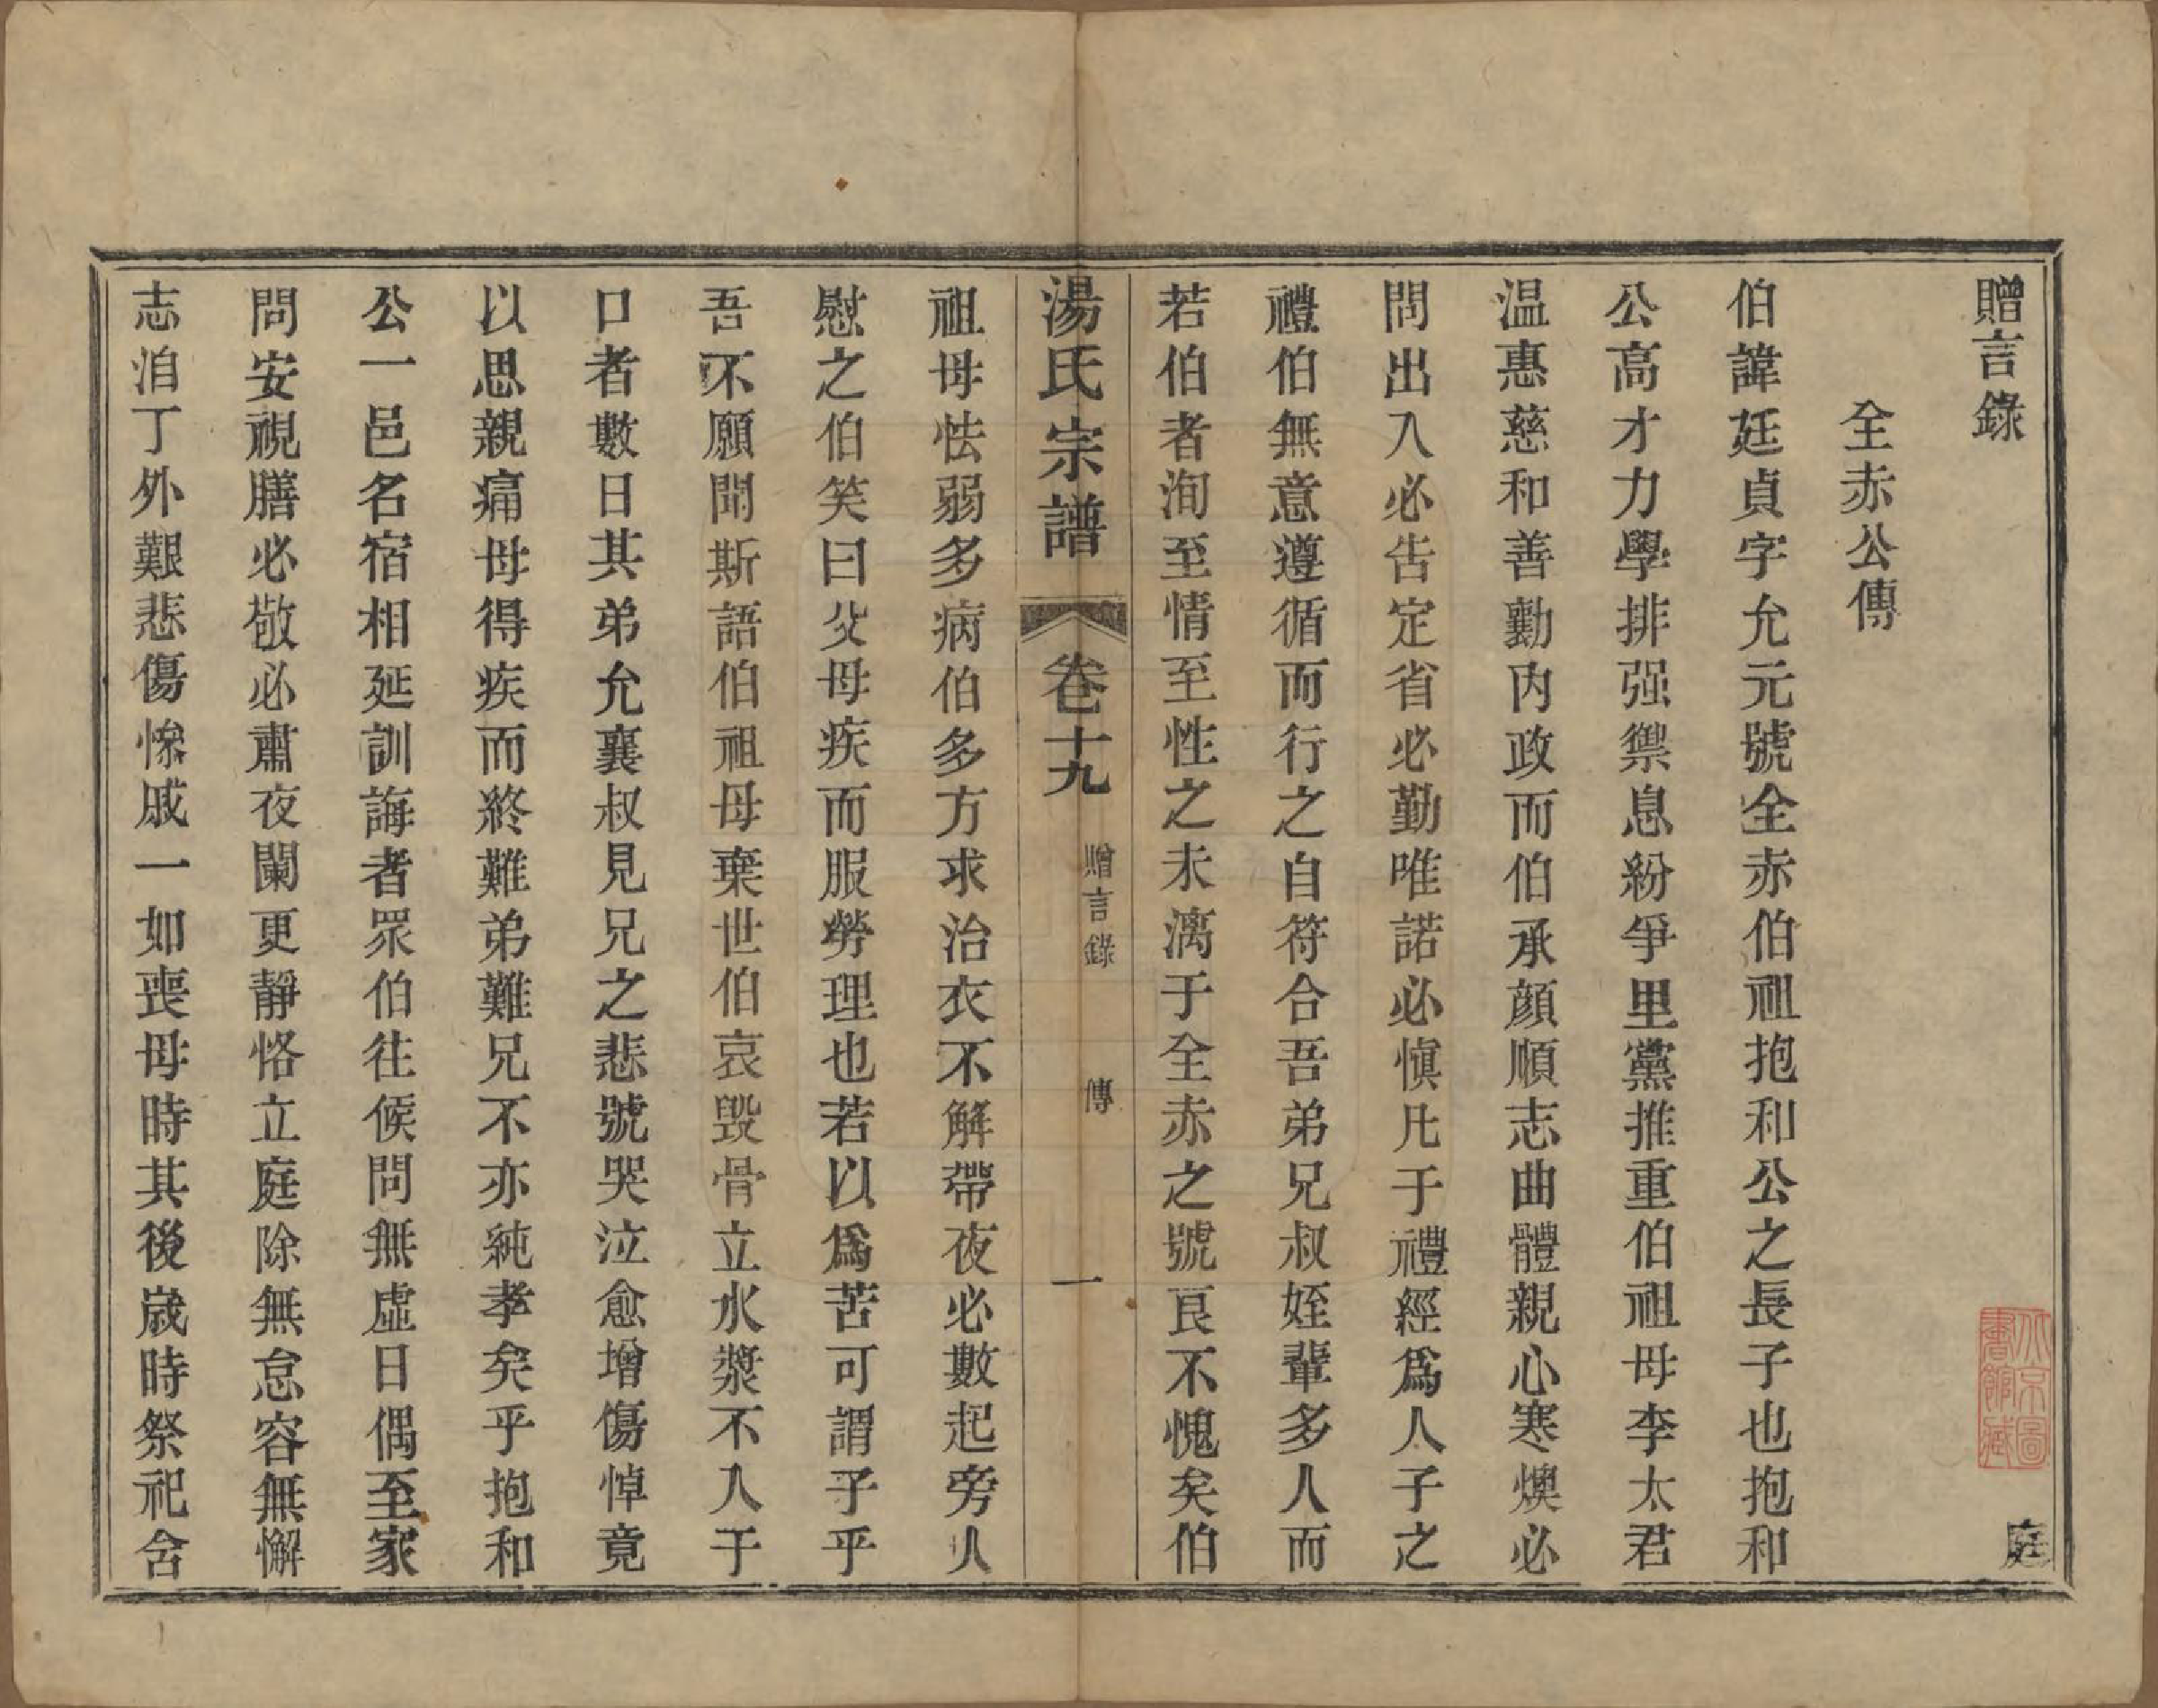 贈言錄
庭
全赤公傳
伯諱廷貞字允元號全赤伯祖抱和公之長子也抱和
公高才力學排强禦息紛爭里黨推重伯祖母李太君
温惠慈和善勷内政而伯承顔順志曲體親心寒燠必
問出入必告定省必勤唯諾必愼凡于禮經爲人子之
禮伯無意遵循而行之自符合吾弟兄叔姪輩多人而
若伯者洵至情至性之未漓于全赤之號良不愧矣伯
湯氏宗譜
卷十九
贈言錄
傳
一
祖母怯弱多病伯多方求治衣不解帶夜必數起旁人
慰之伯笑曰父母疾而服勞理也若以爲苦可謂子乎
吾不願聞斯語伯祖母棄世伯哀毁骨立水漿不入于
口者數日其弟允襄叔見兄之悲號哭泣愈增傷悼竟
以思親痛母得疾而終難弟難兄不亦純孝矣乎抱和
公一邑名宿相延訓誨者眾伯往候問無虚日偶至家
問安視膳必敬必肅夜闌更靜恪立庭除無怠容無懈
志洎丁外艱悲傷慘戚一如喪母時其後歲時祭祀含
北京圖書館藏